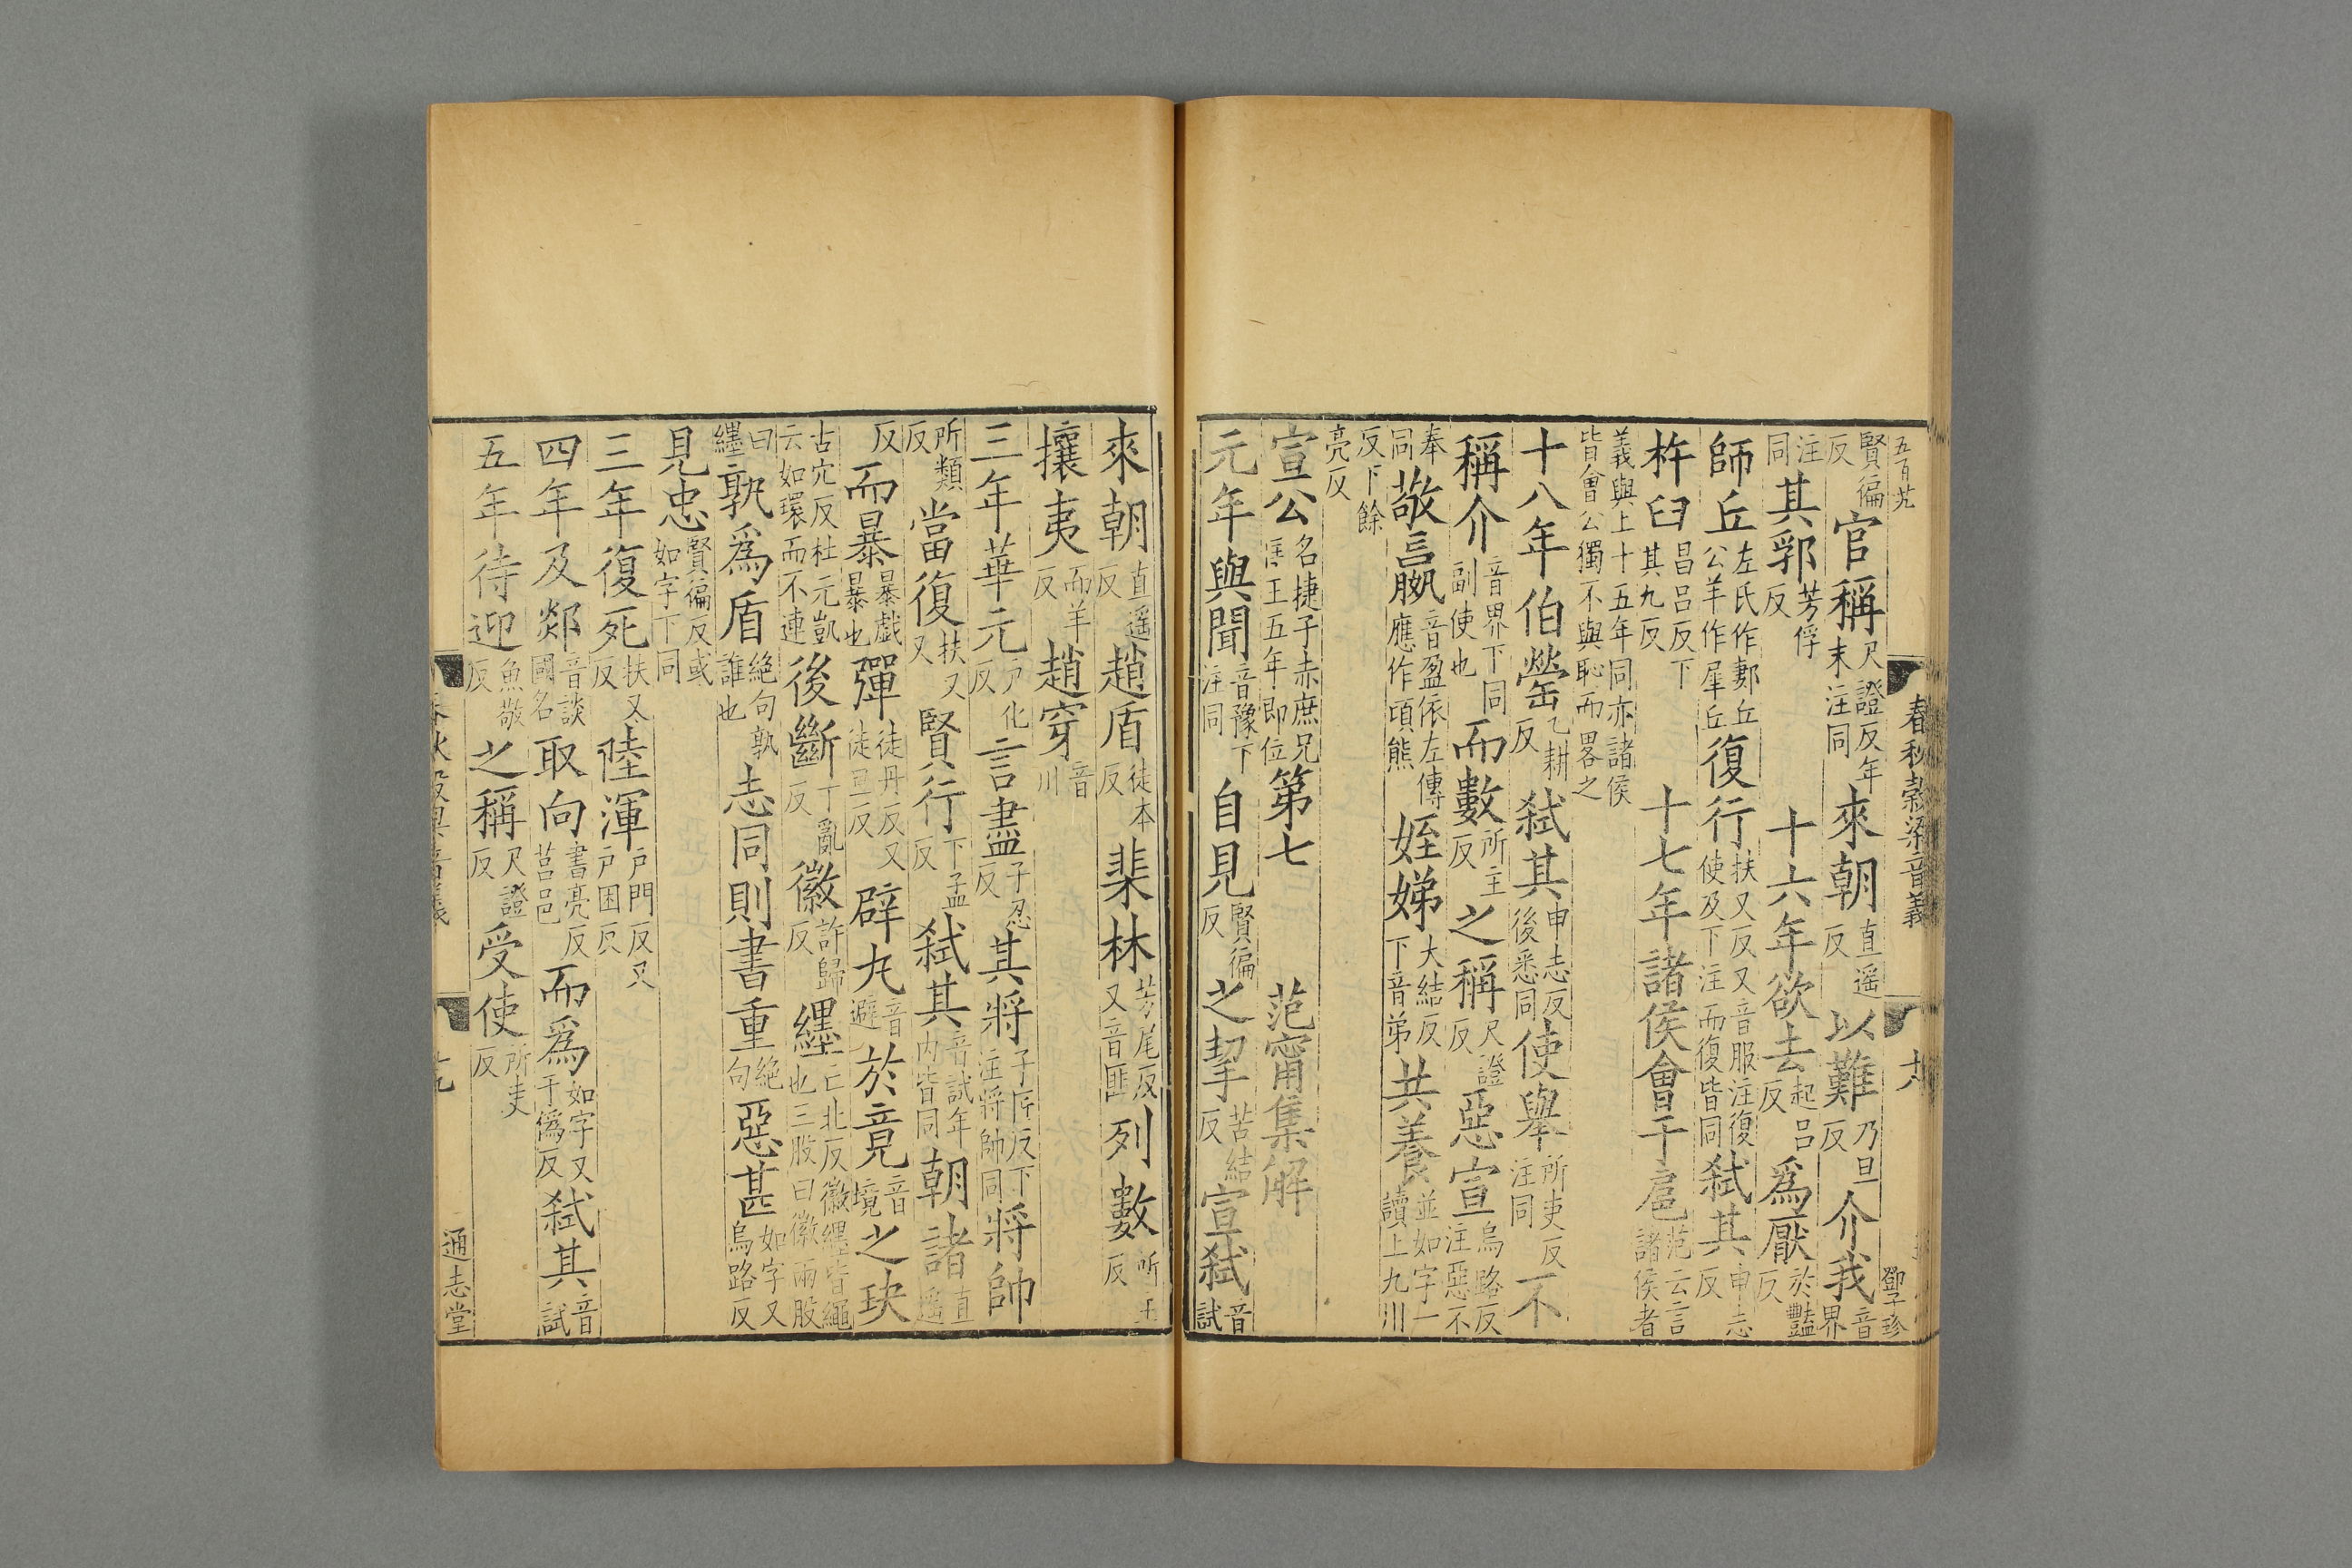 五百卅
春秋穀梁音義 十八 鄧子珍
賢徧反 官稱 尺證反年末注同 來朝 直遥反 以難 乃旦反 介我 音界
注同 其郛 芳俘反 十六年欲去 起呂反 爲厭 於豔反
師丘 左氏作郪丘公羊作犀丘 復行 扶又反又音服注復使及下注而復皆同 弑其 申志反
杵臼 昌呂反下其九反 十七年諸侯會于扈 范云言諸侯者
義與上十五年同亦諸侯皆會公獨不與恥而畧之
十八年伯罃 乙耕反 弑其 申志反後悉同 使舉 所吏反注同 不
稱介 音界下同副使也 而數 所主反 之稱 尺證反 惡宣 烏路反注惡不
奉同 敬嬴 音盈依左傳應作頃熊 姪娣 大結反下音弟 共養 並如字一讀上九用
反下餘亮反
宣公 名捷子赤庶兄匡王五年即位 第七 范甯集解
元年與聞 音豫下注同 自見 賢徧反 之挈 苦結反 宣弑 音試
來朝 直遥反 趙盾 徒本反 棐林 芳尾反又音匪 列數 所主反
攘夷 而羊反 趙穿 音川
三年華元 户化反 言盡 子忍反 其將 子匠反下注將帥同 將帥
所類反 當復 扶又又 賢行 下孟反 弑其 音試年内皆同 朝諸 直遥
反 而暴 暴戲暴也 彈 徒丹反又徒旦反 辟丸 音避 於竟 音境 之玦
古穴反杜元凱云如環而不連 後斷 丁亂反 徽 許歸反 纆 亡北反徽纆皆繩也三股曰徽兩股
曰纆 孰爲盾 絶句孰誰也 志同則書重 絶句 惡甚 如字又烏路反
見忠 賢徧反或如字下同
三年復死 扶又反 陸渾 户門反又户困反
四年及郯 音談國名 取向 書亮反莒邑 而爲 如字又于僞反 弑其 音試
五年待迎 魚敬反 之稱 尺證反 受使 所吏反
春秋穀梁音義 十九 通志堂